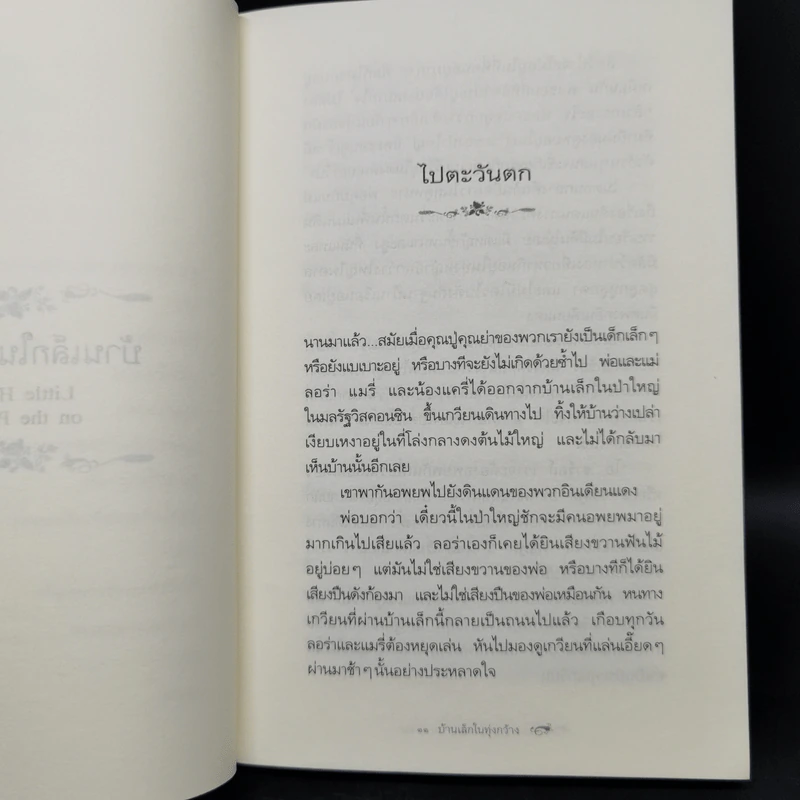 ไปตะวันตก
นานมาแล้ว...สมัยเมื่อคุณปู่คุณย่าของพวกเรายังเป็นเด็กเล็กๆ
หรือยังแบเบาะอยู่ หรือบางทีจะยังไม่เกิดด้วยซ้ำไป พ่อและแม่
ลอร่า แมรี่ และน้องแครี่ได้ออกจากบ้านเล็กในป่าใหญ่
ในมลรัฐวิสคอนซิน ขึ้นเกวียนเดินทางไป ทิ้งให้บ้านว่างเปล่า
เงียบเหงาอยู่ในที่โล่งกลางดงต้นไม้ใหญ่ และไม่ได้กลับมา
เห็นบ้านนั้นอีกเลย
เขาพากันอพยพไปยังดินแดนของพวกอินเดียนแดง
พ่อบอกว่า เดี๋ยวนี้ในป่าใหญ่ชักจะมีคนอพยพมาอยู่
มากเกินไปเสียแล้ว ลอร่าเองก็เคยได้ยินเสียงขวานฟันไม้
อยู่บ่อยๆ แต่มันไม่ใช่เสียงขวานของพ่อ หรือบางทีก็ได้ยิน
เสียงปืนดังก้องมา และไม่ใช่เสียงปืนของพ่อเหมือนกัน หนทาง
เกวียนที่ผ่านบ้านเล็กนี้กลายเป็นถนนไปแล้ว เกือบทุกวัน
ลอร่าและแมรี่ต้องหยุดเล่น หันไปมองดูเกวียนที่แล่นเอี๊ยดๆ
ผ่านมาช้าๆนั้นอย่างประหลาดใจ
๑๑ บ้านเล็กในทุ่งกว้าง